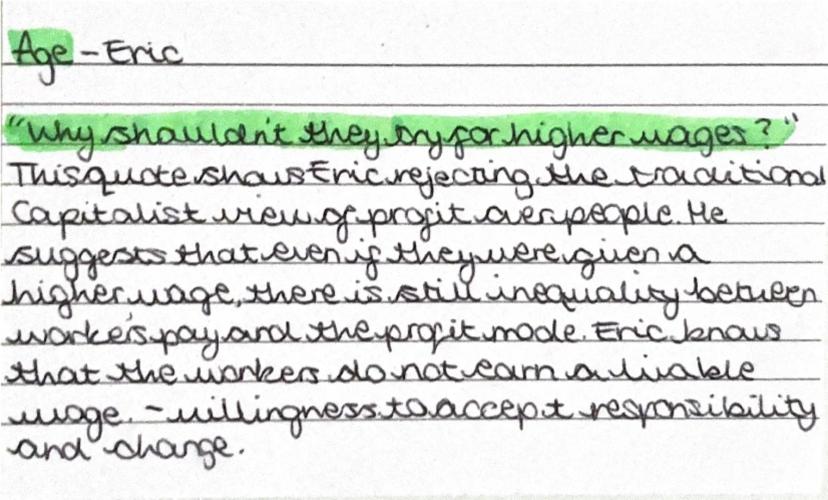 Age - Eric
"Why shouldn't they try for higher wages?"
This quote shows Eric rejecting the traditional
Capitalist view of profit over people. He
suggests that even if they were given a
higher wage, there is still inequality between
worke's pay and the profit made. Eric knows
that the workers do not earn a livable
wage. - willingness to accept responsibility
and change.